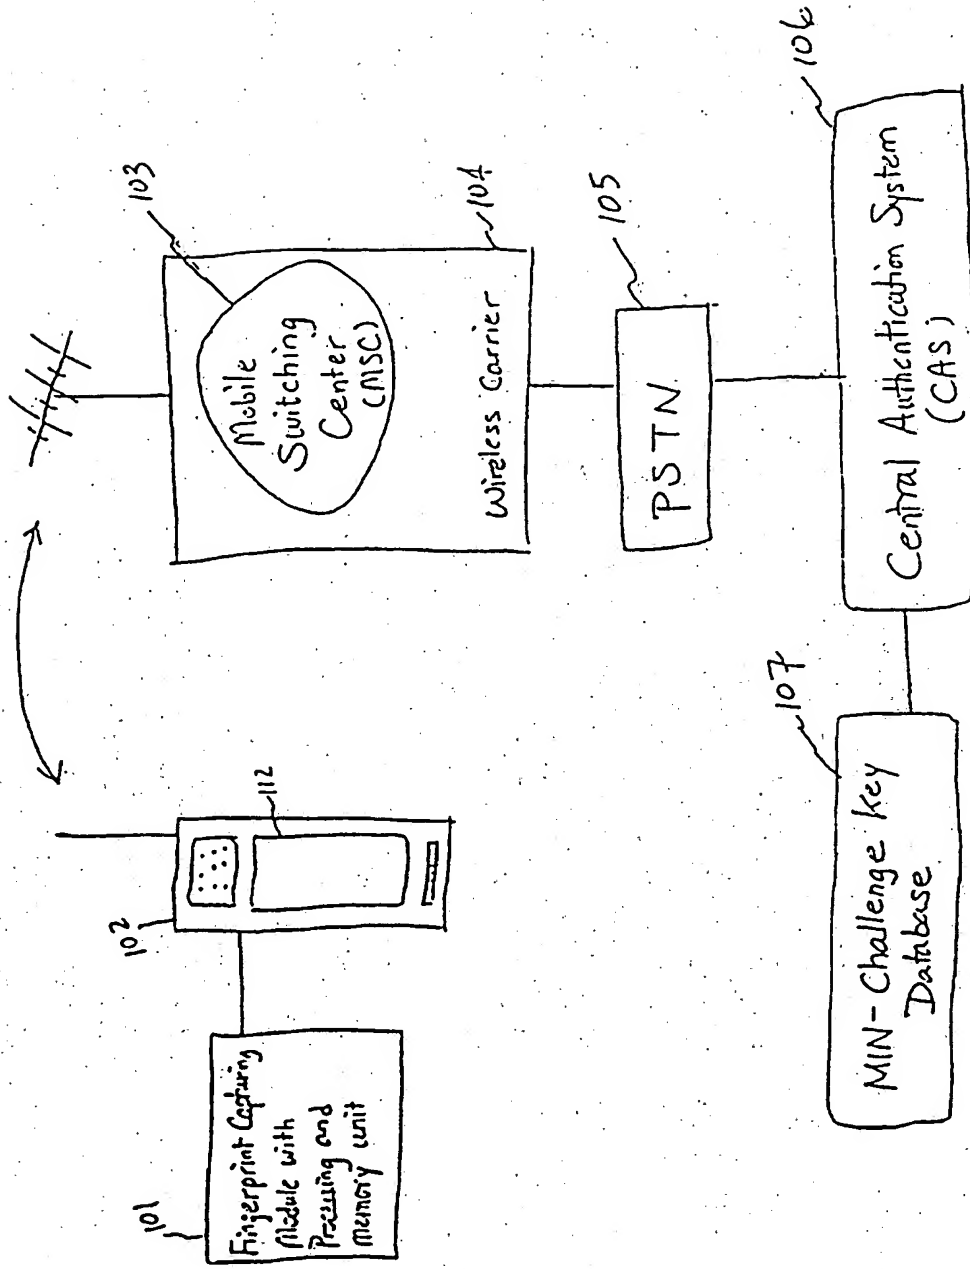 101
Fingerprint Capturing
Module with
Processing and
Memory unit
102
112
103
Mobile
Switching
Center
(MSC)
104
Wireless Carrier
105
PSTN
106
Central Authentication System
(CAS)
107
MIN-Challenge Key
Database